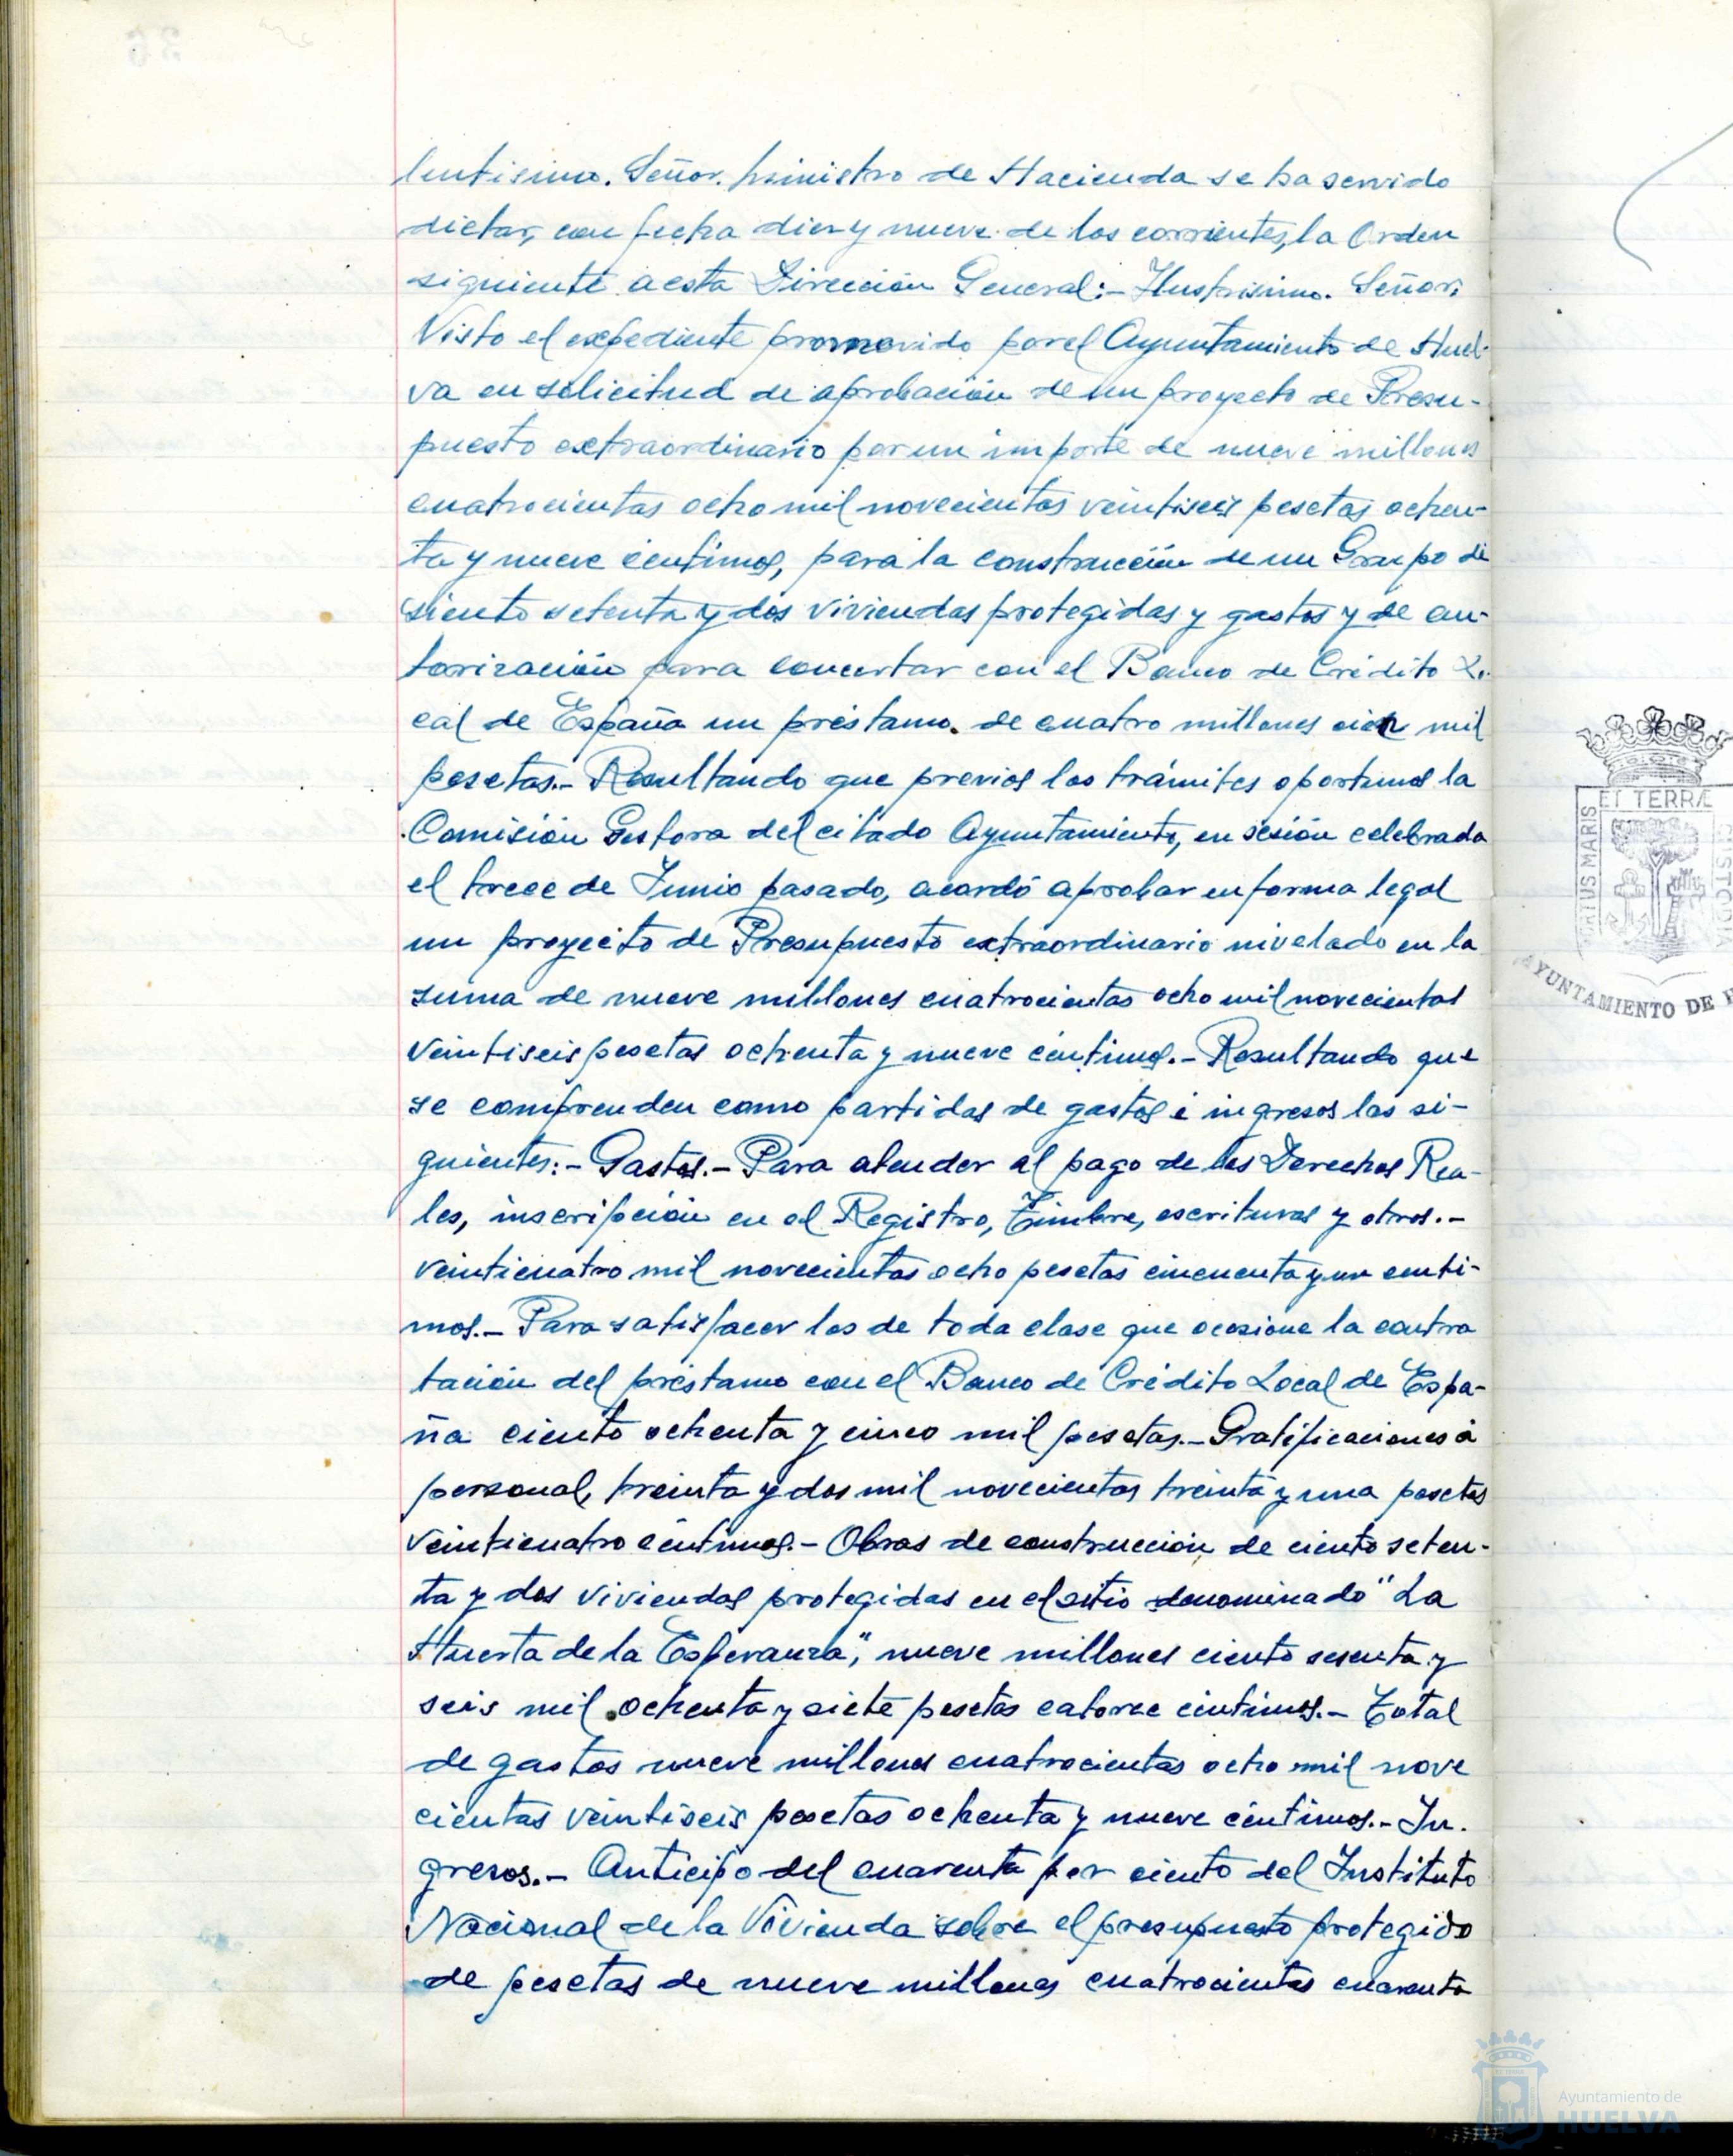 lentisimo. Señor. Ministro de Hacienda se ha servido
dictar, con fecha diez y nueve de los corrientes, la Orden
siguiente a esta Dirección General:- Ilustrisimo. Señor:
Visto el expediente promovido por el Ayuntamiento de Huel-
va en solicitud de aprobación de un proyecto de Presu-
puesto extraordinario por un importe de nueve millones
cuatrocientas ocho mil novecientas veintiseis pesetas ochen-
ta y nueve centimos, para la construcción de un Grupo de
siento setenta y dos viviendas protegidas y gastos y de au-
torización para concertar con el Banco de Crédito Lo-
cal de España un préstamo. de cuatro millones cien mil
pesetas.- Resultando que previos los trámites oportunos la
Comisión Gestora del citado Ayuntamiento, en sesión celebrada
el trece de Junio pasado, acordó aprobar en forma legal
un proyecto de Presupuesto extraordinario nivelado en la
suma de nueve millones cuatrocientas ocho mil novecientas
veintiseis pesetas ochenta y nueve céntimos.- Resultando que
se comprenden como partidas de gastos é ingresos las si-
guientes:- Gastos.- Para atender al pago de los Derechos Rea-
les, inscripción en el Registro, Timbre, escrituras y otros.-
veinticuatro mil novecientas ocho pesetas cincuenta y un centi-
mos.- Para satisfacer los de toda clase que ocasione la contra
tación del préstamo con el Banco de Crédito Local de Espa-
ña ciento ochenta y cinco mil pesetas.- Gratificaciones á
personal, treinta y dos mil novecientas treinta y una pesetas
veinticuatro céntimos.- Obras de construcción de ciento seten-
ta y dos viviendas protegidas en el sitio denominado "La
Huerta de la Esperanza", nueve millones ciento sesenta y
seis mil ochenta y siete pesetas catorce céntimos.- Total
de gastos nueve millones cuatrocientas ocho mil nove
cientas veintiseis pesetas ochenta y nueve céntimos.- In-
gresos.- Anticipo del cuarenta por ciento del Instituto
Nacional de la Vivienda sobre el presupuesto protegido
de pesetas de nueve millones cuatrocientas cuarenta
PORTUS MARIS
ET TERRÆ
CUSTODIA
AYUNTAMIENTO DE H
Ayuntamiento de
HUELVA